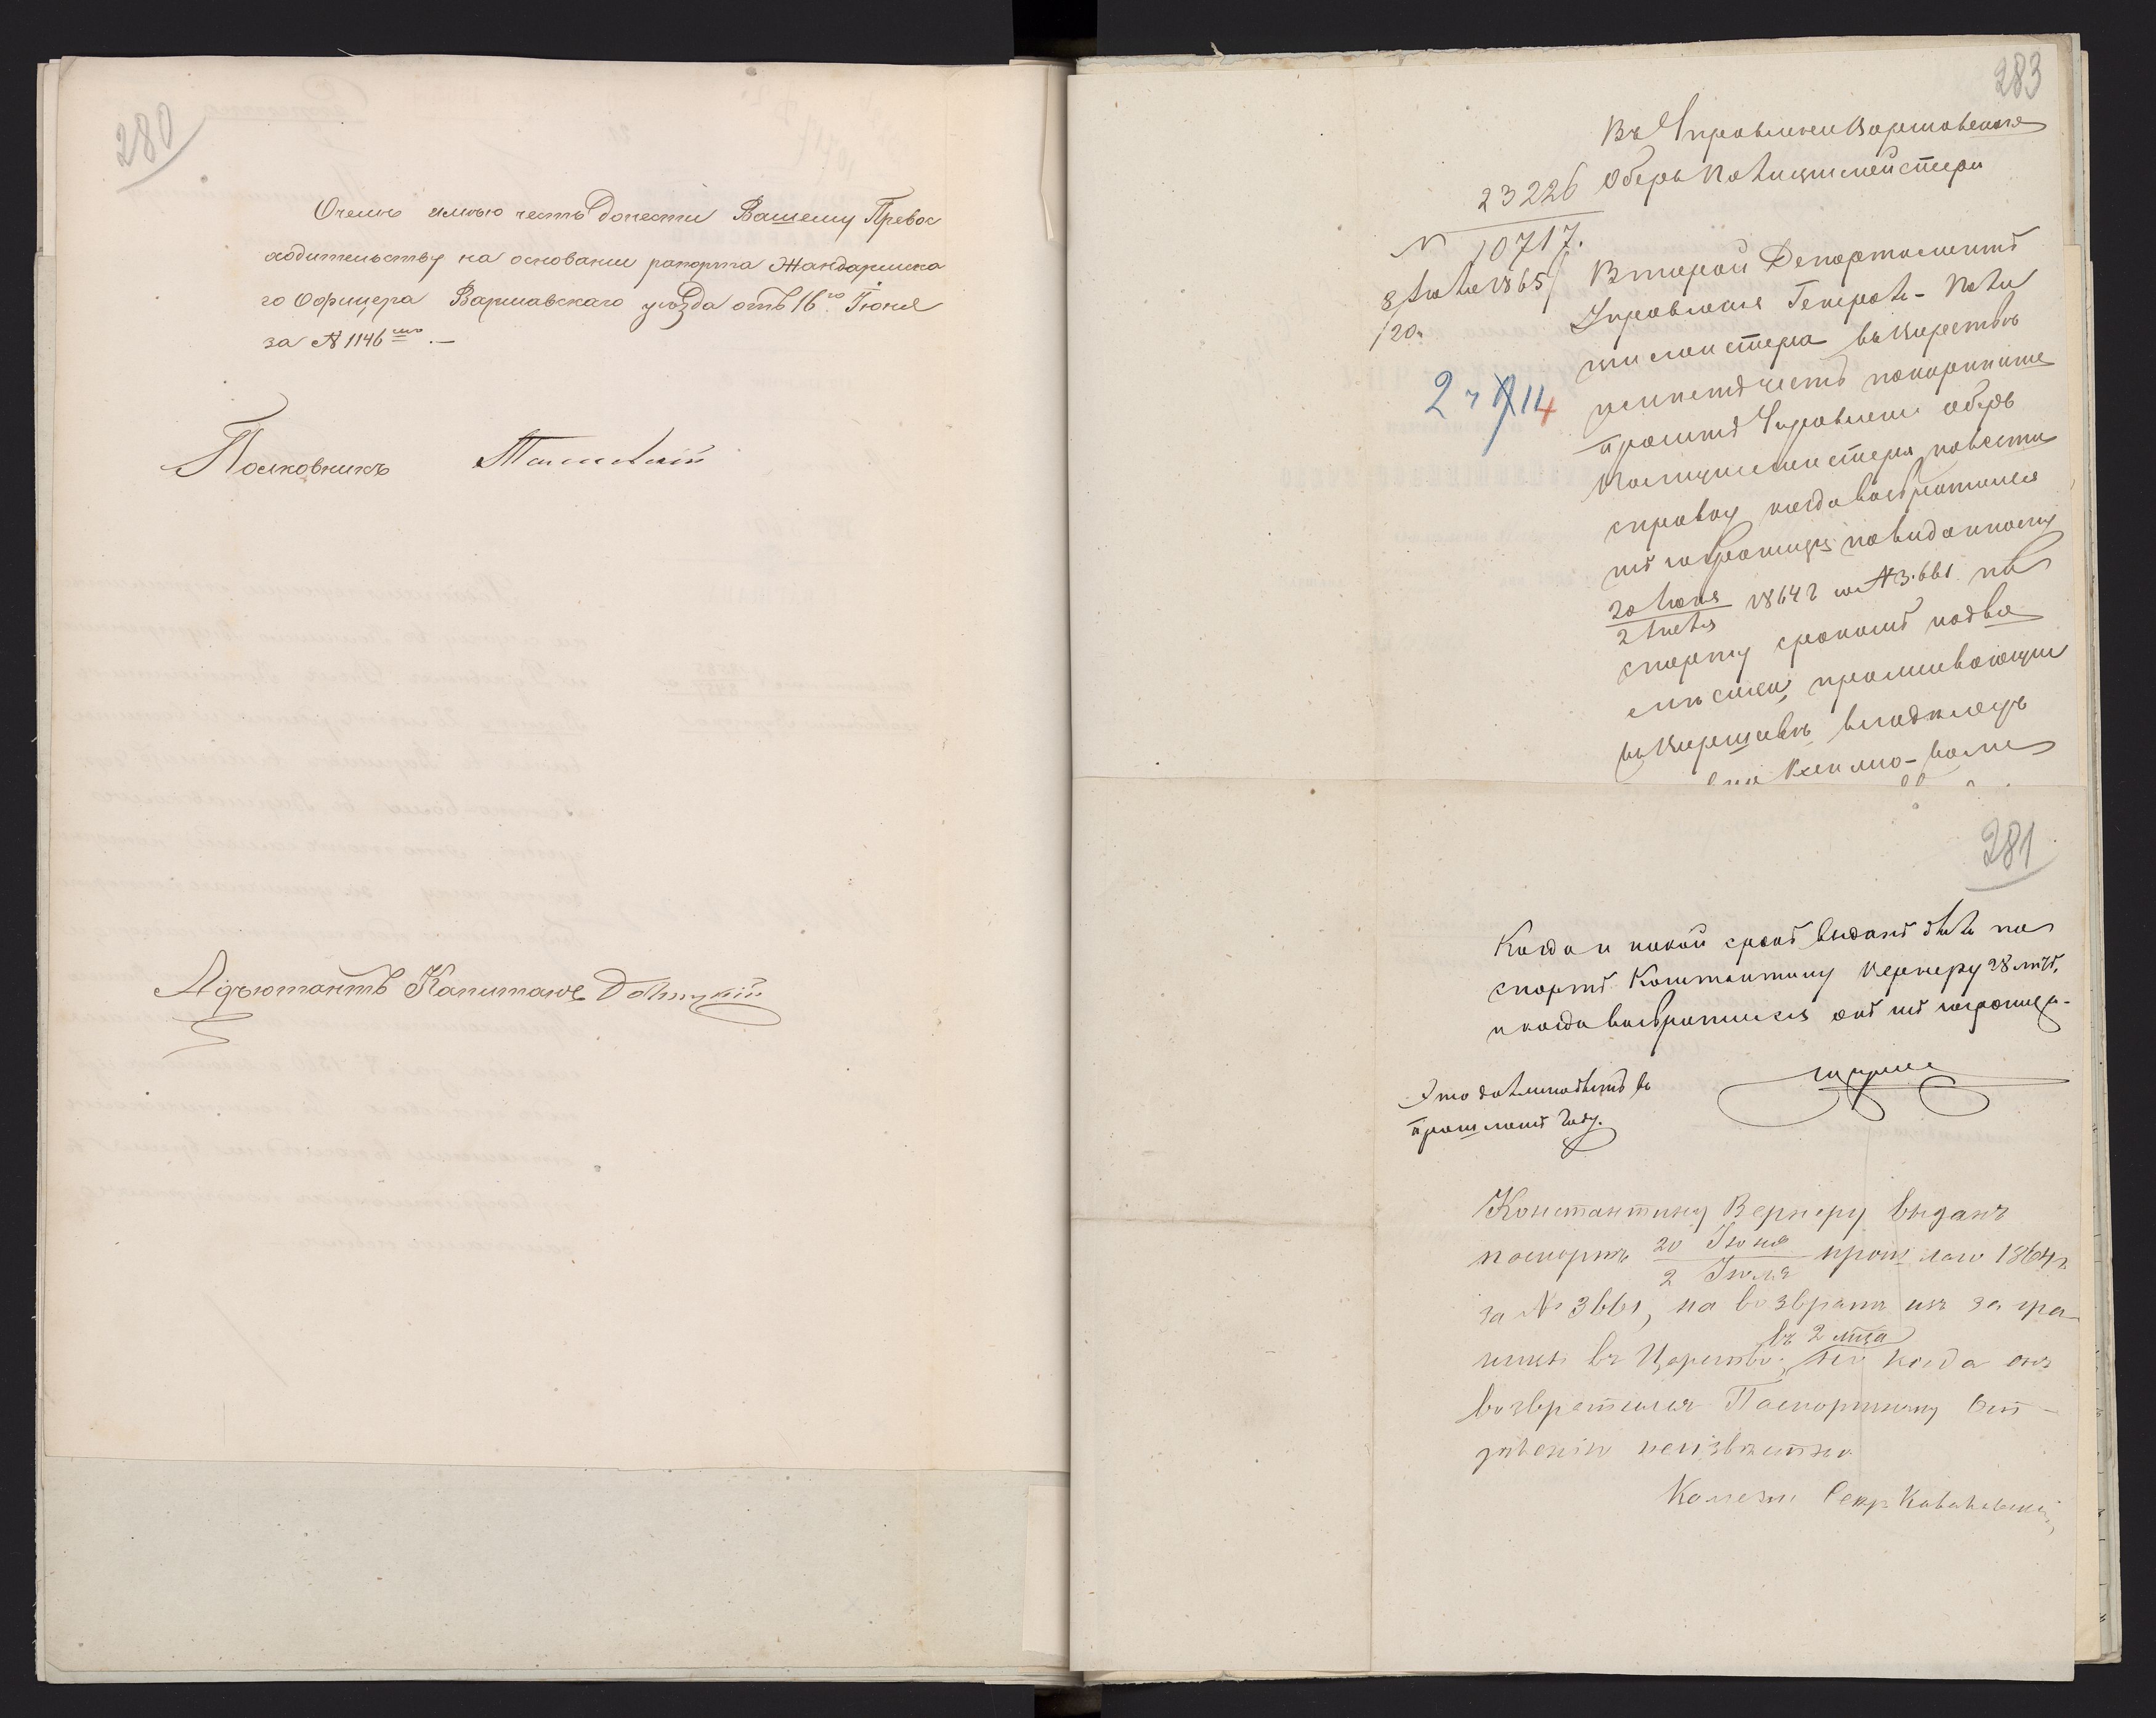 280
О чемъ имѣю честь донести Вашему Превос
ходительству на основаніи рапорта Жандармска
го Офицера Варшавскаго уѣзда отъ 16го Іюня
за № 1146мъ.—
Полковникъ
Адъютантъ Капитанъ
283
Въ Управленіи Варшавскаго
Оберъ Полицмейстера
23226
N 10717.
8 Іюля 1865
120.
2 ч 14
Второй Департаментъ
Управленія Генералъ-Поли
цмейстера въ Царствѣ
имѣетъ честь покорнѣйше
проситъ Управленіе Оберъ
Полицмейстера навести
справку когда возвратился
изъ заграницы по виданному
20 Іюня
2 Іюля 1864 г за № 3661 па
спорту срокомъ на два
мѣсяца, проживающій
въ Варшавѣ владѣлецъ
281
Когда и какой срокъ виданъ былъ па
спортъ Константину Вернеру 28 лѣтъ,
и когда возвратился онъ изъ заграницы-
Это должно быть въ
прошломъ году.
Константину Вернеру выданъ
паспортъ 20 Іюня
2 Іюля прошлаго 1864 г
за № 3661, на возвратъ изъ за гра-
ницы въ Царство,
въ 2 мца
но когда онъ
возвратился Паспортному Отъ-
дѣленію неизвѣстно
Коллежс Секр